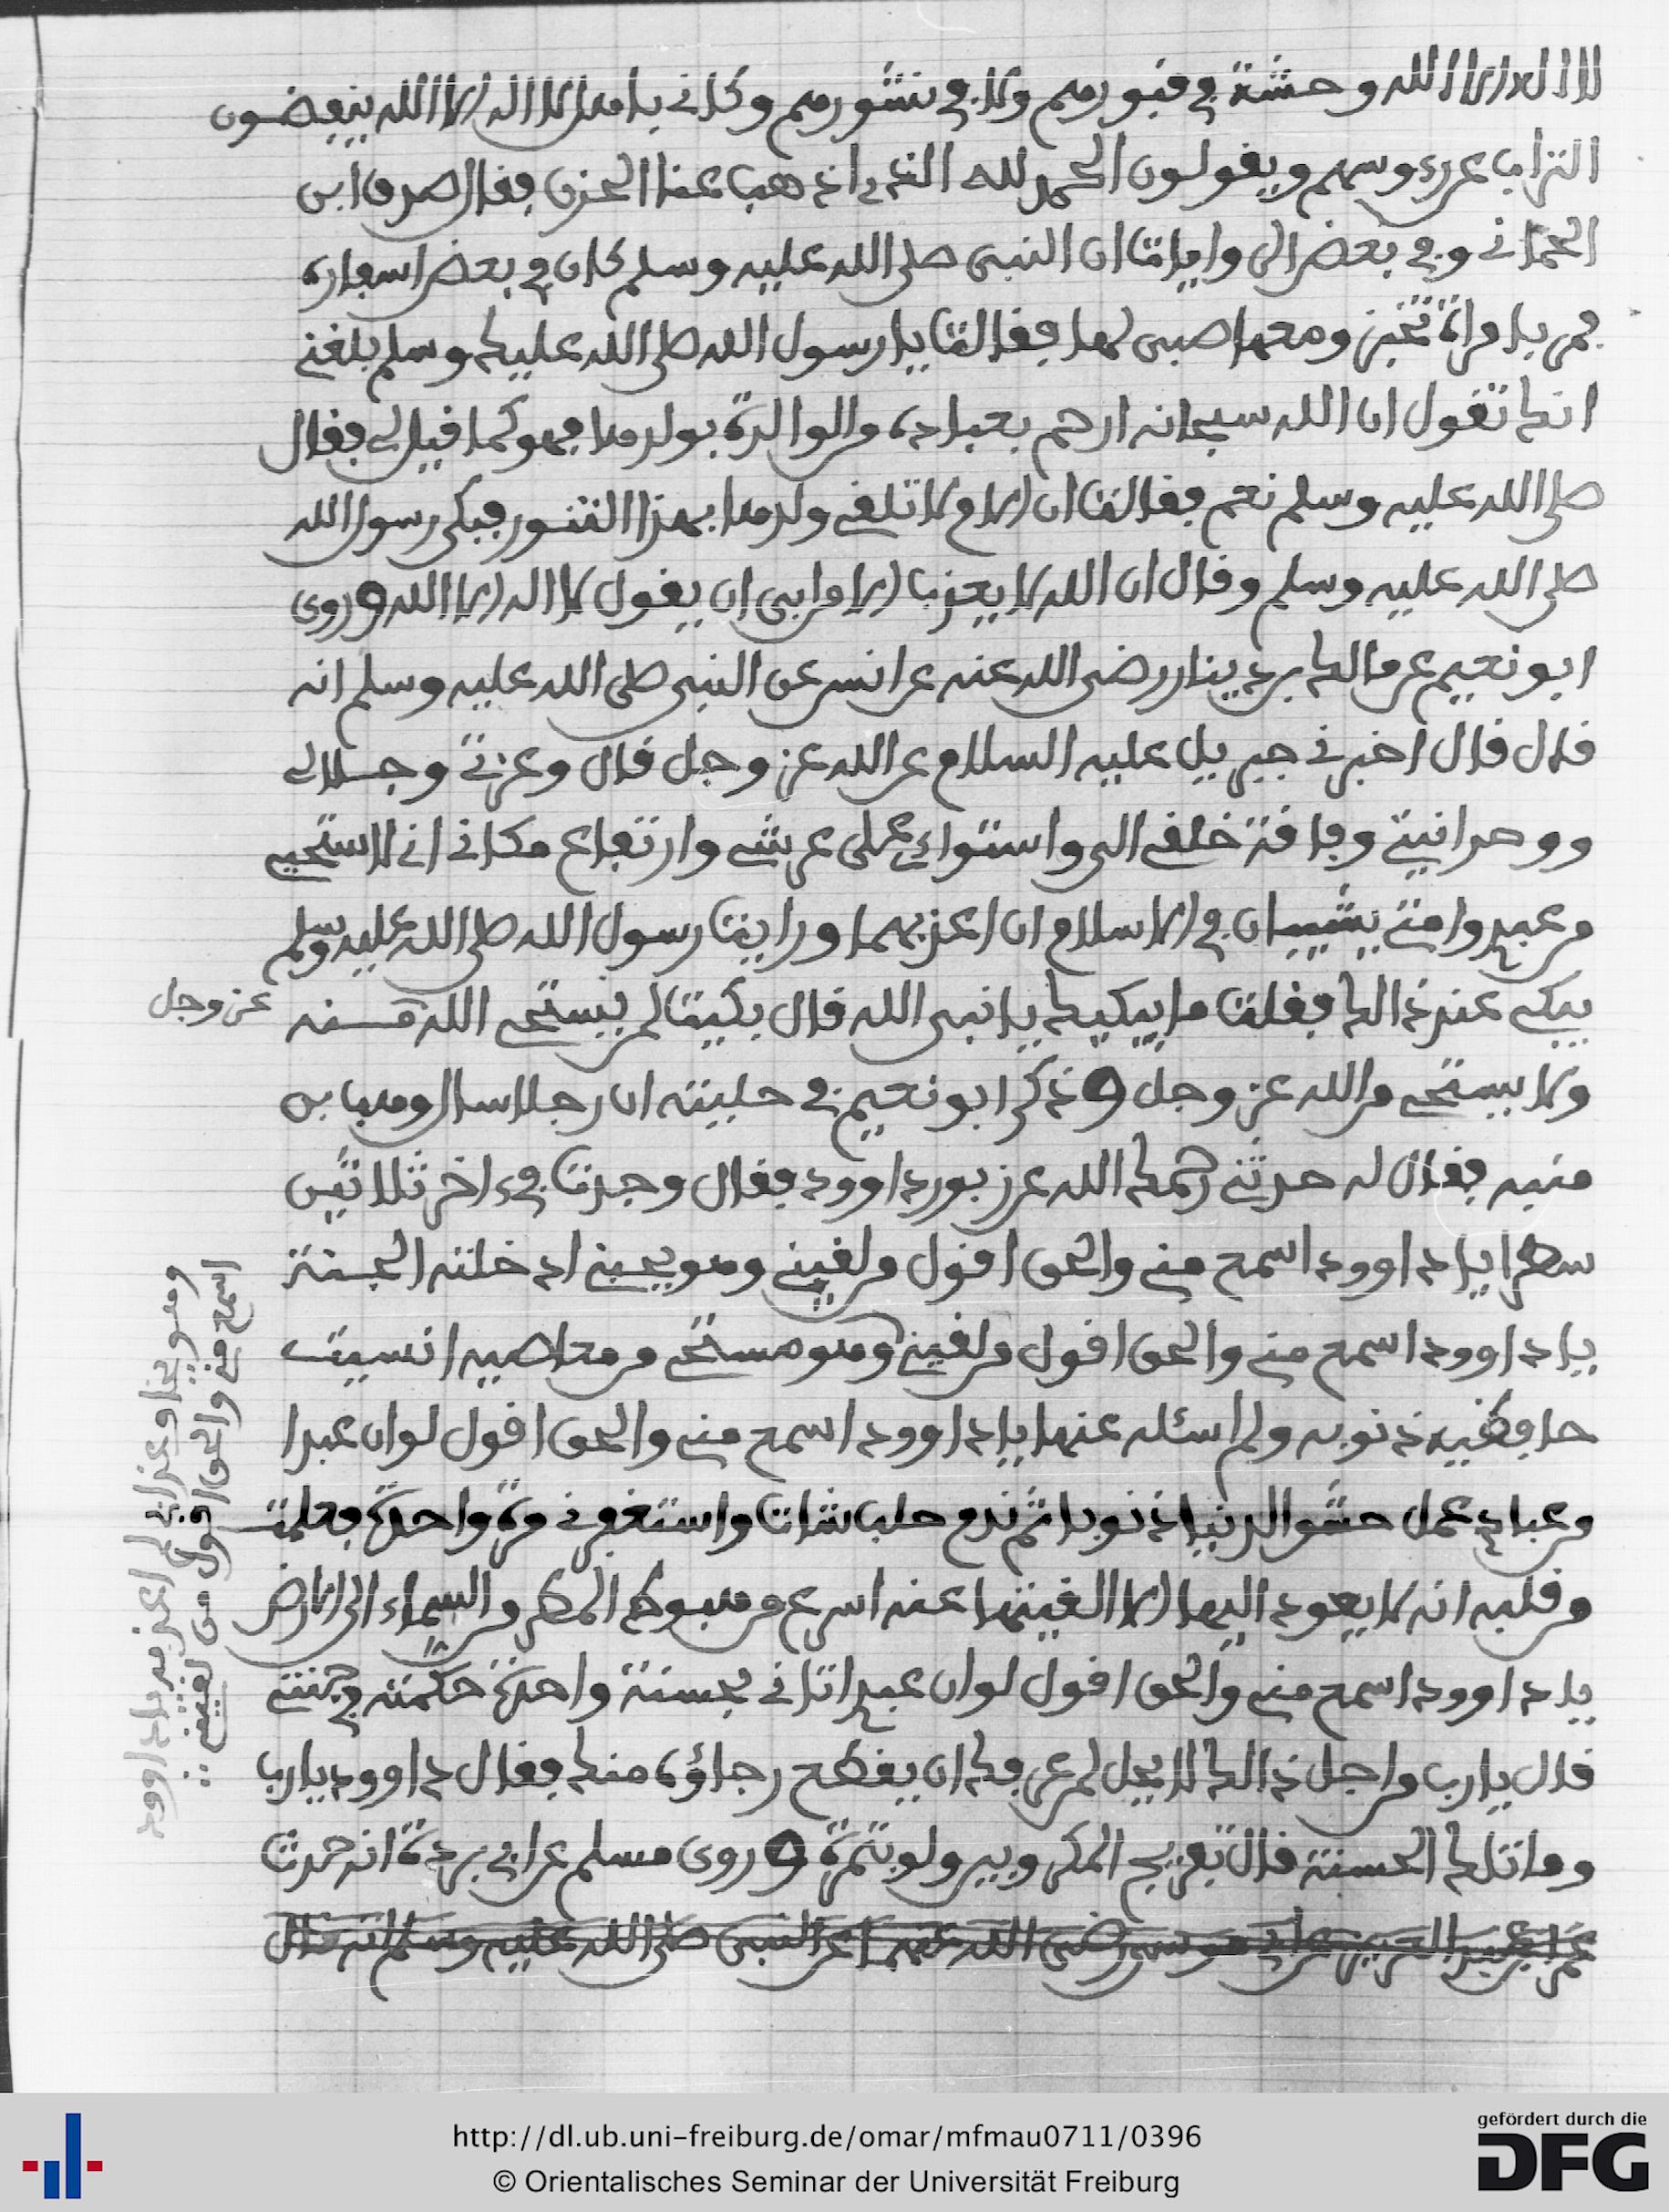 لا اله الا الله وحشة في قبورهم ولا في نشورهم وكأني بأهل لا اله الا الله ينفضون
التراب عن رءوسهم ويقولون الحمد لله الذي اذهب عنا الحزن فقال صدق ابن
الحماني وفي بعض الروايات ان النبي صلى الله عليه وسلم كان في بعض اسفاره
فمر بامرأة تخبز ومعها صبي لها فقالت يا رسول الله صلى الله عليك وسلم بلغني
انك تقول ان الله سبحانه ارحم بعباده من الوالدة بولدها فهو كما قيل لي فقال
صلى الله عليه وسلم نعم فقالت ان الام لا تلقي ولدها بهذا التنور فبكى رسول الله
صلى الله عليه وسلم وقال ان الله لا يعذب الا من ابى ان يقول لا اله الا الله وروى
ابو نعيم عن مالك بن دينار رضي الله عنه عن انس عن النبي صلى الله عليه وسلم انه
قال قال اخبرني جبريل عليه السلام عن الله عز وجل قال وعزتي وجلالي
ووحدانيتي وفاقة خلقي الي واستواءي على عرشي وارتفاع مكاني اني لاستحيي
من عبدي وامتي يشيبان في الاسلام ان اعذبهما ورايت رسول الله صلى الله عليه وسلم
يبكي عند ذالك فقلت ما يبكيك يا نبي الله قال بكيت لمن يستحي الله منه
عز وجل
ولا يستحي من الله عز وجل وذكر ابو نعيم في حليته ان رجلا سال وهب بن
منبه فقال له حدثني رحمك الله عن زبور داوود فقال وجدت في ءاخر ثلاثين
سطرا يا داوود اسمع مني والحق اقول من لقيني وهو يحبني ادخلته الجنة
يا داوود اسمع مني والحق اقول من لقيني وهو مستحي من معاصيه انسيت
حافظيه ذنوبه ولم اسئله عنها يا داوود اسمع مني والحق اقول لو ان عبدا
من عبادي عمل حشو الدنيا ذنوبا ثم ندم حلب شات واستغفرني مرة واحدة فعلمت
من قلبه انه لا يعود اليها الا القيتها عنه اسرع من هبوط المطر من السماء الى الارض
يا داوود اسمع مني والحق اقول لو ان عبدا اتاني بحسنة واحدة حكمته في جنتي
قال يا رب من اجل ذالك لا يحل لمن عرفك ان يقطع رجاؤه منك فقال داوود يا رب
وما تلك الحسنة قال تفريج المكروب ولو بتمرة وروى مسلم عن ابي بردة انه حدث
عمر بن عبد العزيز عن ابي موسى رضي الله عنهما عن النبي صلى الله عليه وسلم انه قال
اسمع مني والحق اقول من لقيني
وهو يخاف عذابي لم اعذبه يا داوود
http://dl.ub.uni-freiburg.de/omar/mfmau0711/0396
© Orientalisches Seminar der Universität Freiburg
gefördert durch die
DFG